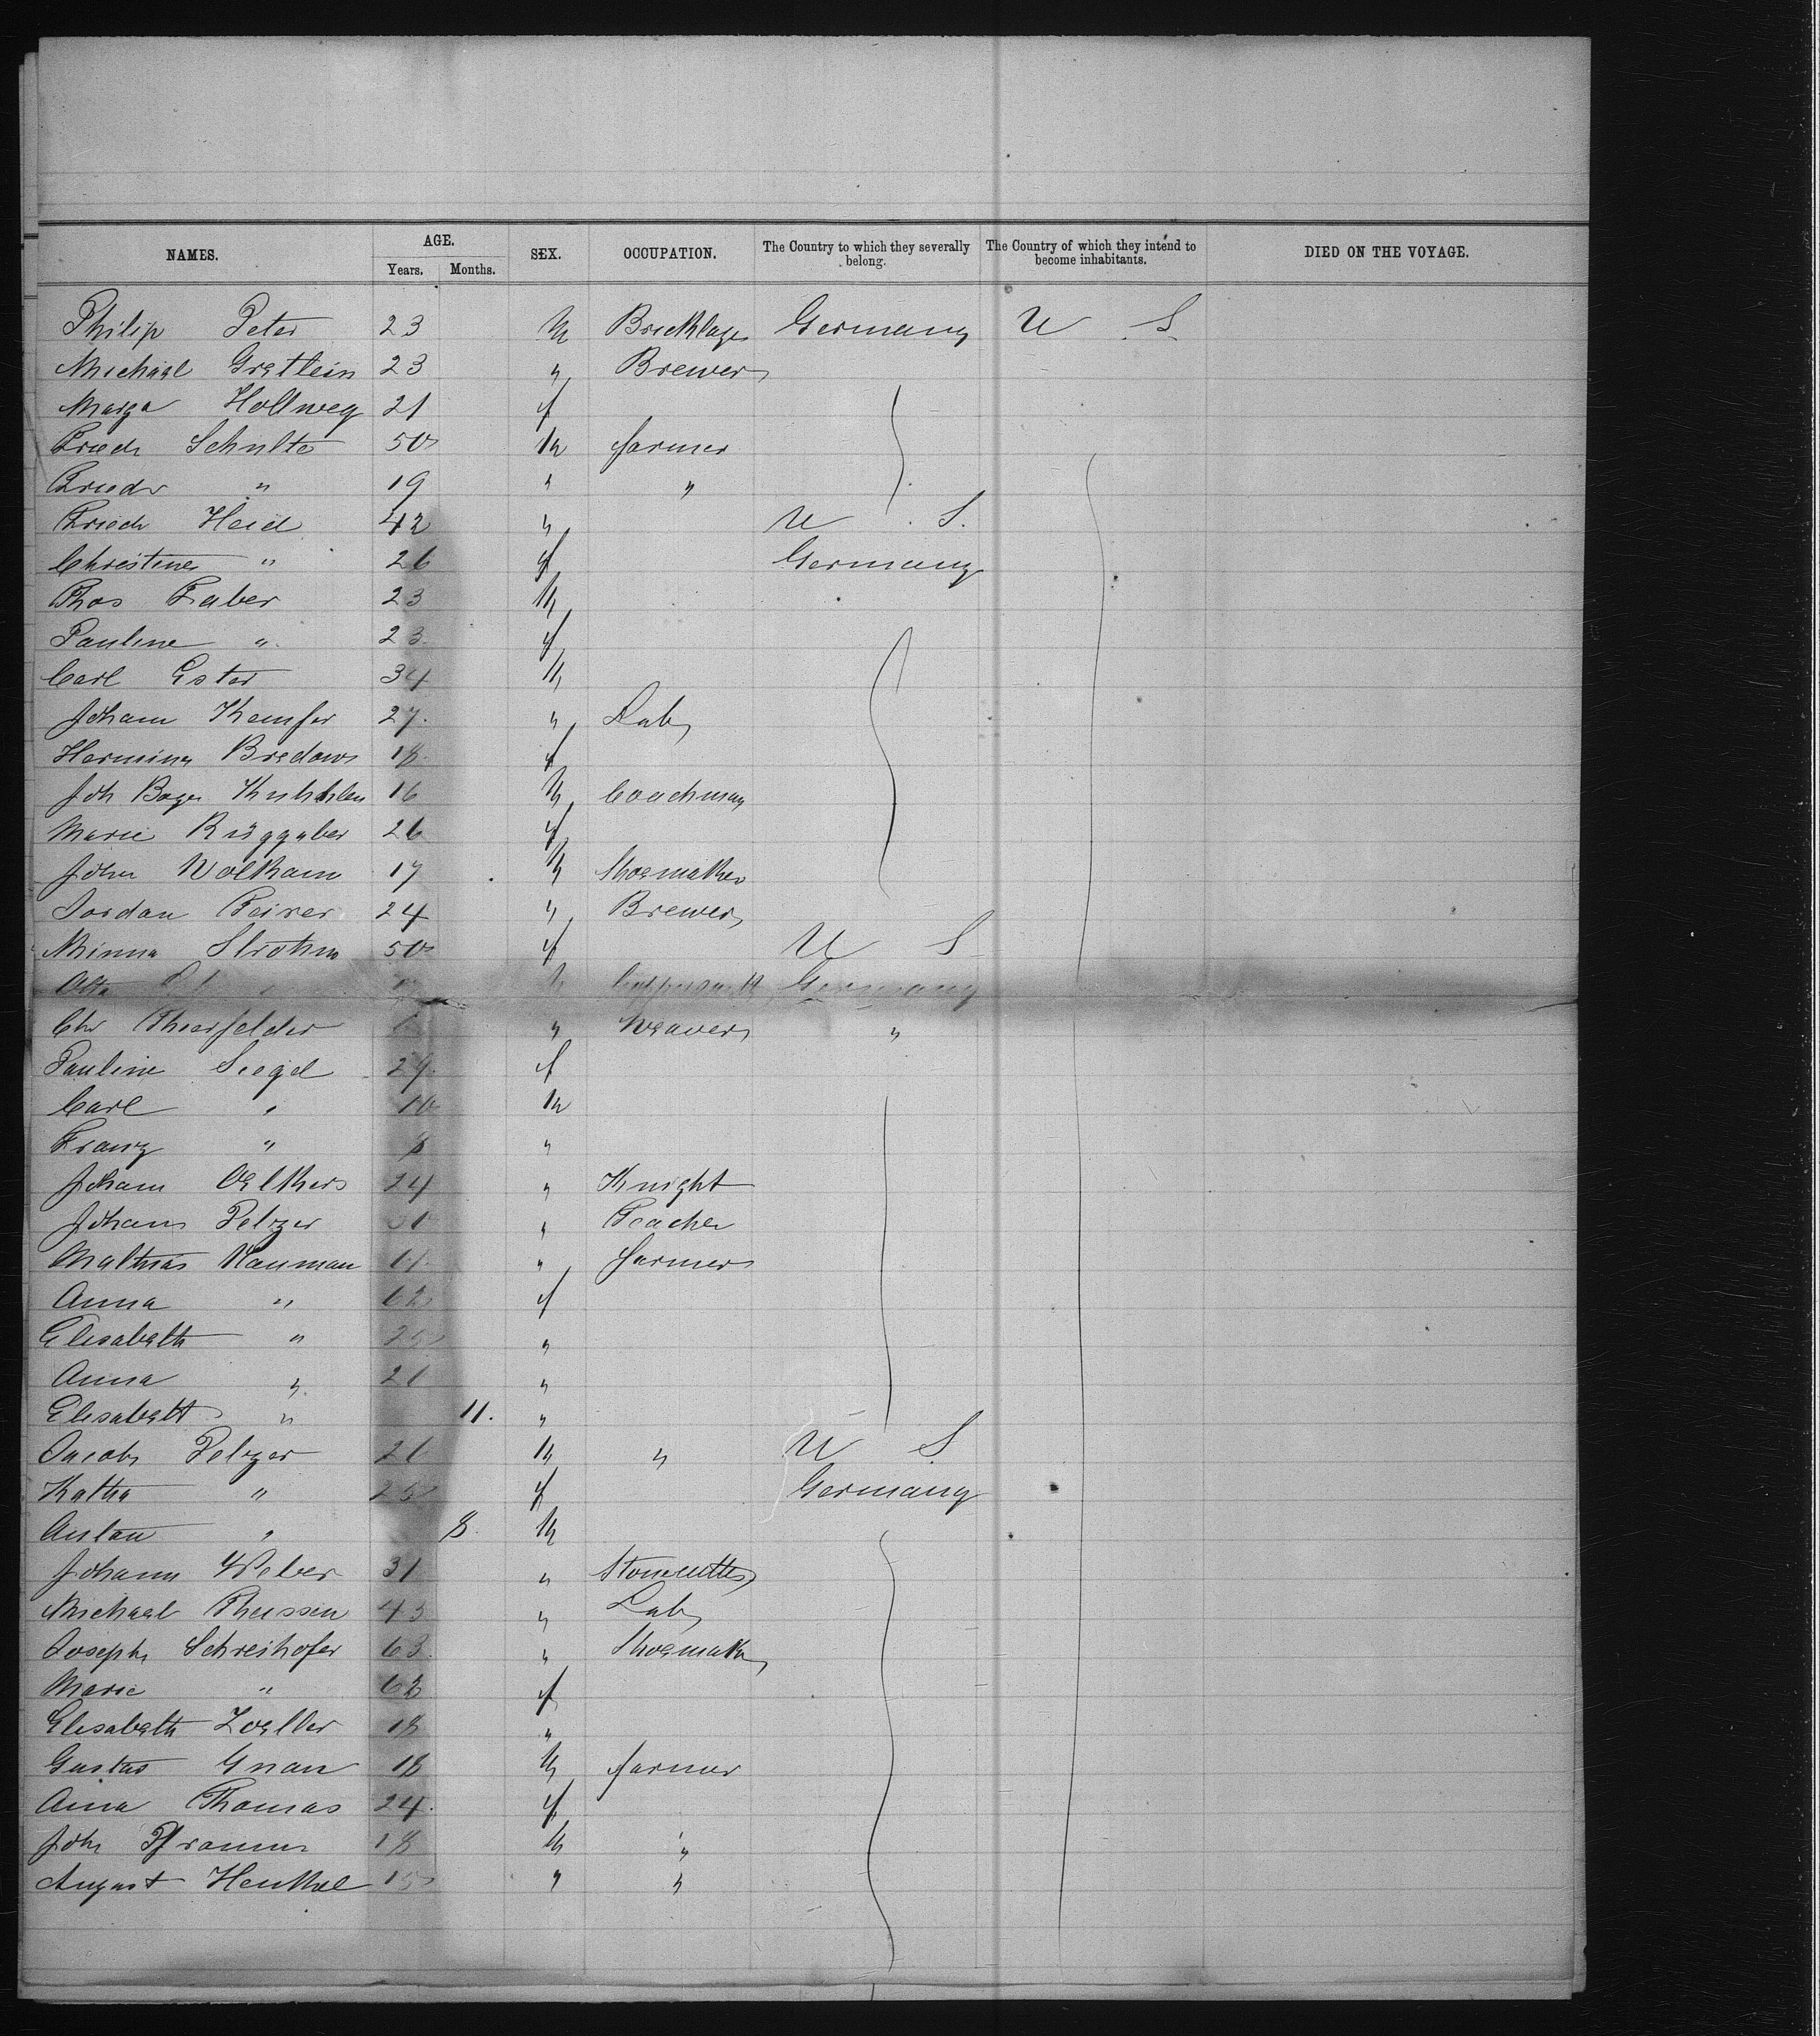 NAMES. AGE. SEX. OCCUPATION. The Country to which they severally belong. The Country of which they intend to become inhabitants. DIED ON THE VOYAGE.
Years. Months.
Philip Peter 23 M Bricklayer Germany U S
Michael Gretlein 23 " Brewer
Marga Hollweg 21 f
Friedr Schulte 50 M farmer
Friedr " 19 " "
Friedr Heid 42 " U S.
Christine " 26 f Germany
Thos Faber 23 M
Pauline " 23 f
Carl Ester 34 M
Johann Kemfer 27 " Lab
Hermina Bredow 18 f
Joh 16 M Coachman
Marie Rüggaber 26 f
John Wolkam 17 M Shoemaker
Jordan 24 " Brewer
Minna Strohm 50 f U S
Otto M Germany
Chr Thierfelder " Weaver "
Pauline Siegel 29 f
Carl " 10 M
Franz " 8 "
Johann Oelkers 24 " Knight
Johann Pelzer " Teacher
Mathias Nauman " farmer
Anna " 62 f
Elisabeth " "
Anna " 21 "
Elisabeth " 11. "
Jacob Pelzer 21 M " U S
Katha " 25 f Germany
Anton " 8. M
Johann Weber 31 " Stonecutter
Michael Theissen 43 " Lab
Joseph Schreihofer 63 " Shoemak
Marie " 62 f
Elisabeth Zoeller 18 "
Gustav Gnan 18 M farmer
Anna Thomas 24 f
Joh 18 M "
August Henkel 15 " "